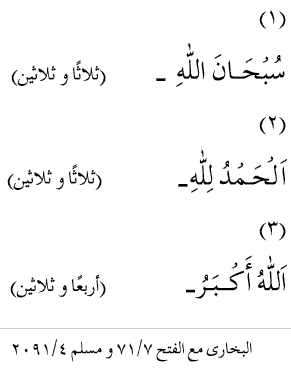 (١)
سُبْحَـانَ اللّٰهِ ـ (ثلاثًا و ثلاثين)
(٢)
اَلْحَمْدُ لِلّٰهِ ـ (ثلاثًا و ثلاثين)
(٣)
اَللّٰهُ أَكْـبَـرُ ـ (أربعًا و ثلاثين)
البخارى مع الفتح ٧١/٧ و مسلم ٢٠٩١/٤